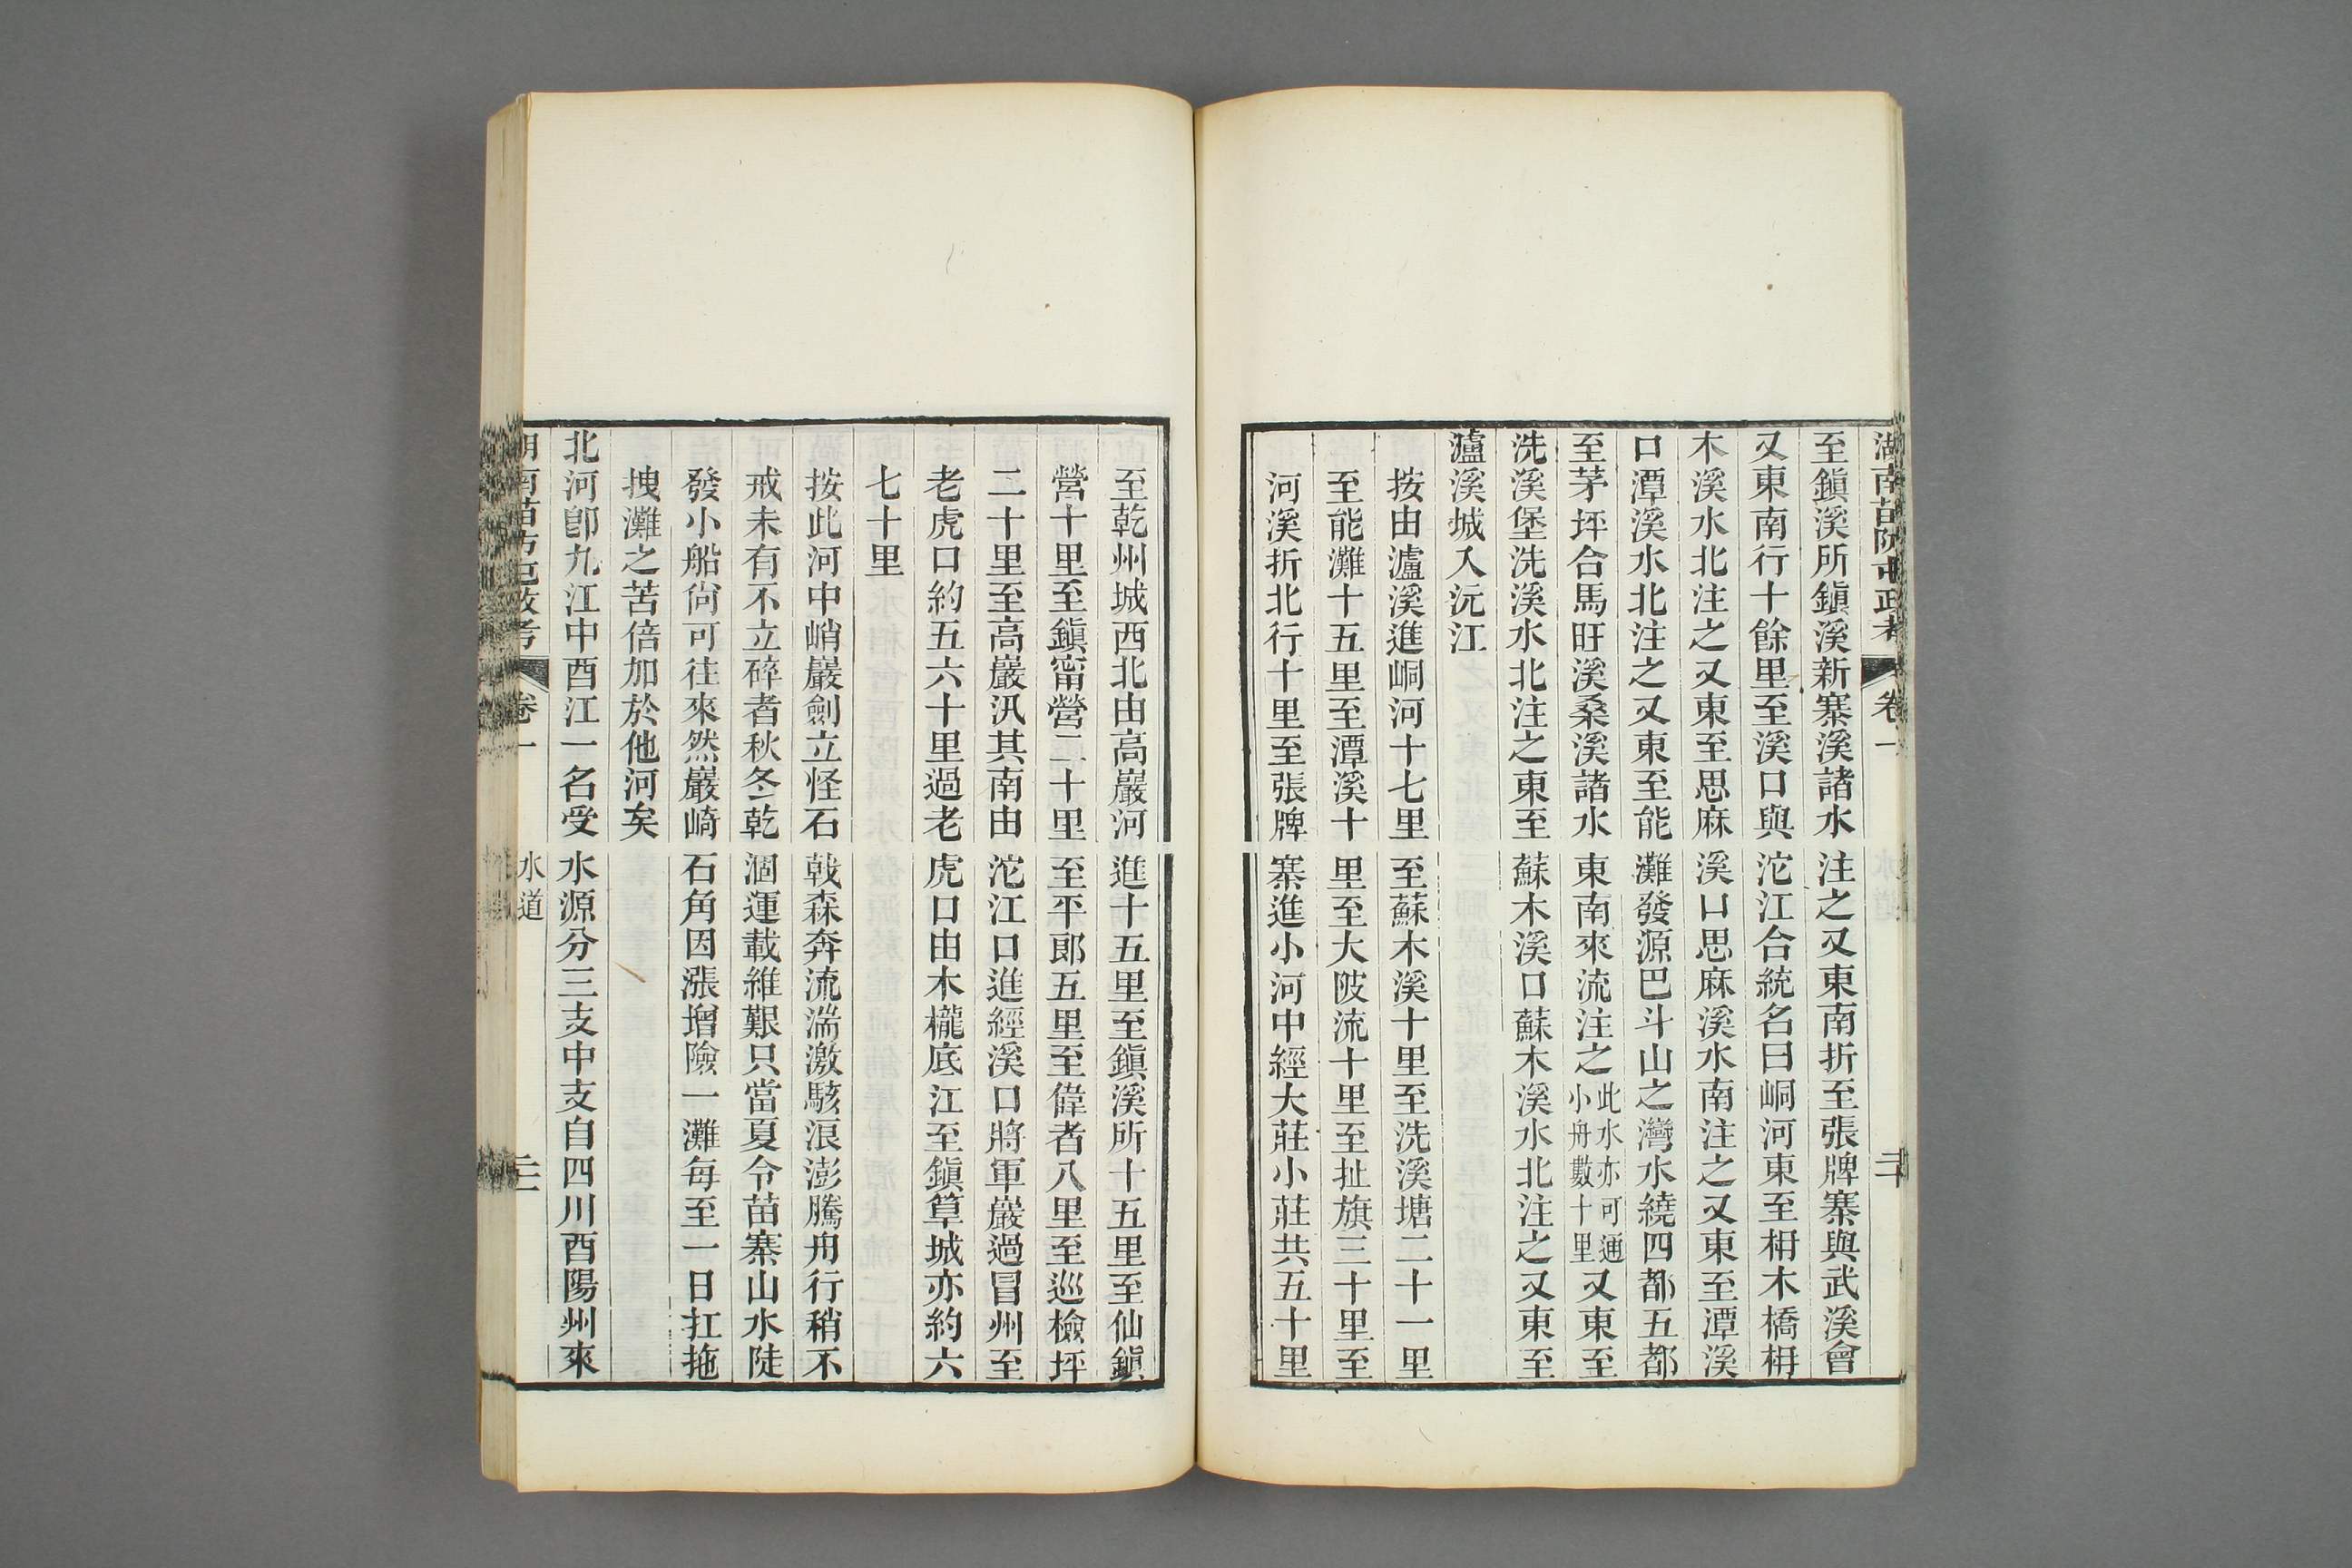 湖南苗防屯政考 卷一
至鎭溪所鎭溪新寨溪諸水注之又東南折至張牌寨與武溪會
又東南行十餘里至溪口與沱江合統名曰峒河東至枏木橋枏
木溪水北注之又東至思麻溪口思麻溪水南注之又東至潭溪
口潭溪水北注之又東至能灘發源巴斗山之灣水繞四都五都
至茅坪合馬旺溪桑溪諸水東南來流注之此水亦可通小舟數十里又東至
洗溪堡洗溪水北注之東至蘇木溪口蘇木溪水北注之又東至
瀘溪城入沅江
按由瀘溪進峒河十七里至蘇木溪十里至洗溪塘二十一里
至能灘十五里至潭溪十里至大陂流十里至扯旗三十里至
河溪折北行十里至張牌寨進小河中經大莊小莊共五十里
至乾州城西北由高巖河進十五里至鎭溪所十五里至仙鎭
營十里至鎭甯營二十里至平郎五里至偉者八里至巡檢坪
二十里至高巖汛其南由沱江口進經溪口將軍巖過冒州至
老虎口約五六十里過老虎口由木櫳底江至鎭筸城亦約六
七十里
按此河中峭巖劍立怪石戟森奔流湍激駭浪澎騰舟行稍不
戒未有不立碎者秋冬乾涸運載維艱只當夏令苗寨山水陡
發小船尙可往來然巖崎石角因漲增險一灘每至一日扛拖
拽灘之苦倍加於他河矣
北河卽九江中酉江一名受水源分三支中支自四川酉陽州來
湖南苗防屯政考 卷一 水道